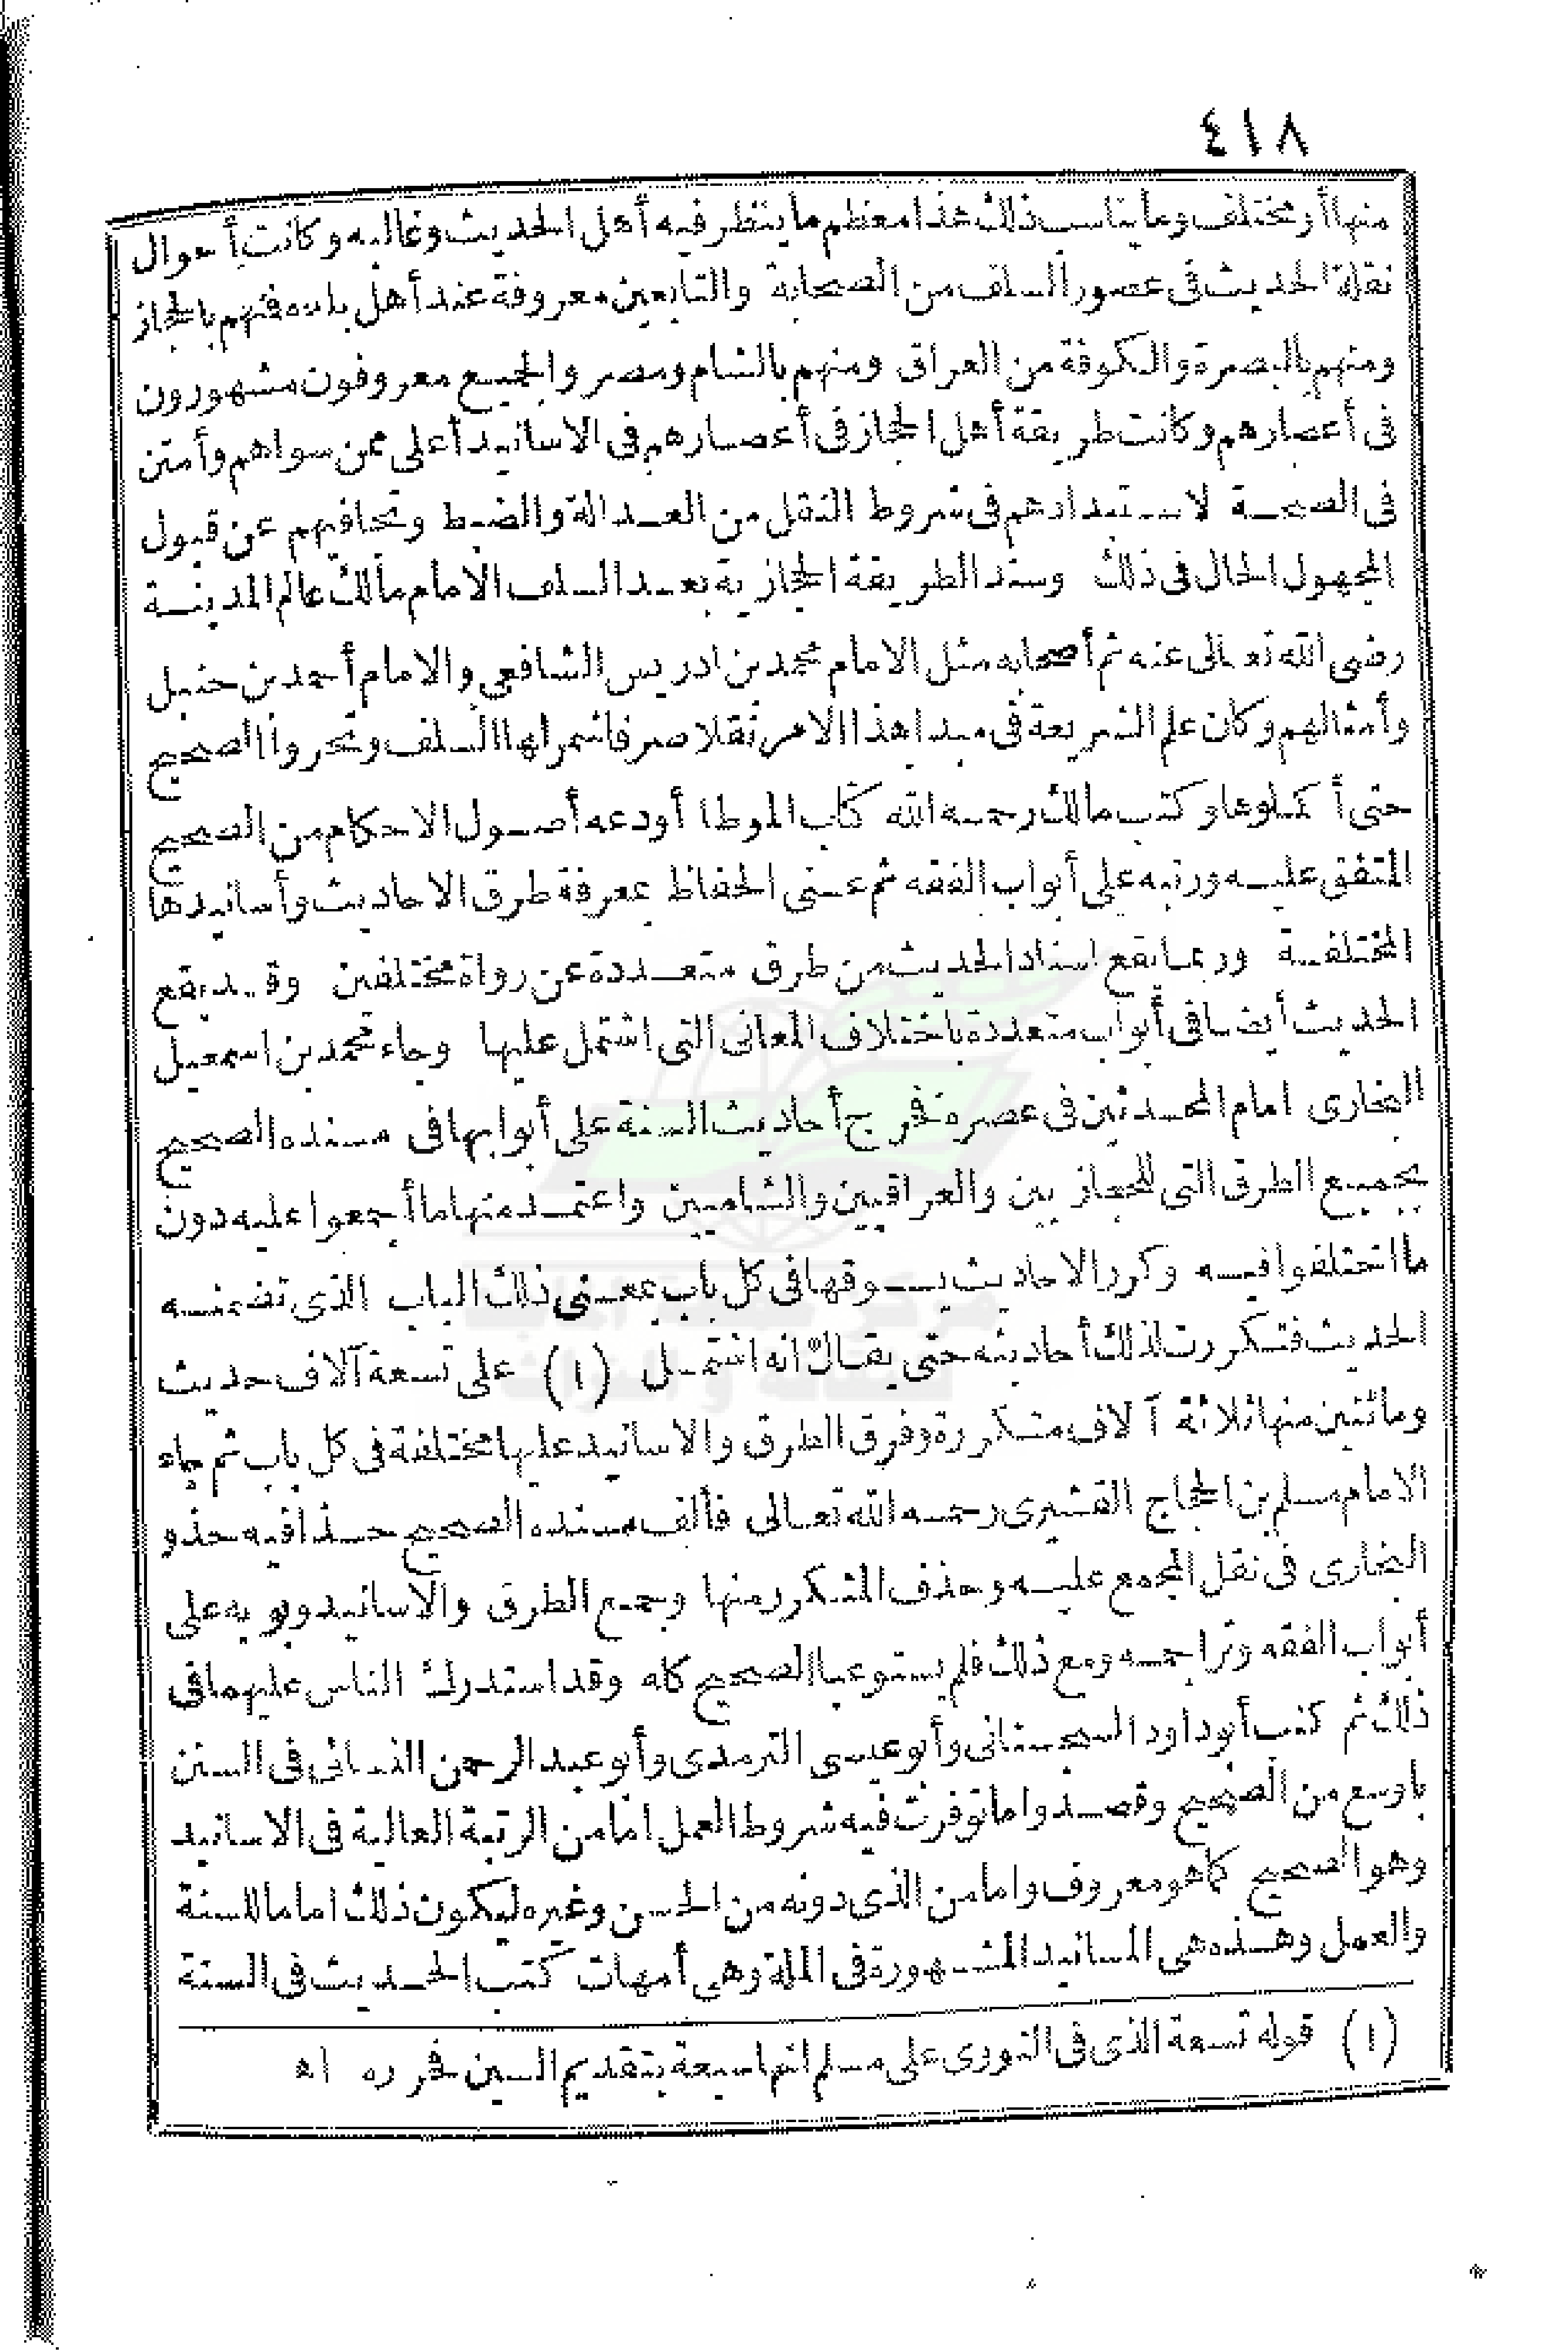 ٤١٨
منها أو مختلف وما يناسب ذلك هذا معظم ما ينظر فيه أهل الحديث وغالبه وكانت أحوال
نقلة الحديث فى عصور السلف من الصحابة والتابعين معروفة عند أهل بلده فمنهم بالحجاز
ومنهم بالبصرة والكوفة من العراق ومنهم بالشام ومصر والجميع معروفون مشهورون
فى أعصارهم وكانت طريقة أهل الحجاز فى أعصارهم فى الاسانيد أعلى ممن سواهم وأمتن
فى الصحة لاستبدادهم فى شروط النقل من العدالة والضبط وتجافيهم عن قبول
المجهول الحال فى ذلك وسند الطريقة الحجازية بعد السلف الامام مالك عالم المدينة
رضى الله تعالى عنه ثم أصحابه مثل الامام محمد بن ادريس الشافعى والامام أحمد بن حنبل
وأمثالهم وكان علم الشريعة فى مبدا هذا الامر نقلا صرفا شمر لها السلف وتحروا الصحيح
حتى أكملوها وكتب مالك رحمه الله كتاب الموطا أودعه أصول الاحكام من الصحيح
المتفق عليه ورتبه على أبواب الفقه ثم عنى الحفاظ بمعرفة طرق الاحاديث وأسانيدها
المختلفة وربما يقع اسناد الحديث من طرق متعددة عن رواة مختلفين وقد يقع
الحديث أيضا فى أبواب متعددة باختلاف المعانى التى اشتمل عليها وجاء محمد بن اسمعيل
البخارى امام المحدثين فى عصره فخرج أحاديث السنة على أبوابها فى مسنده الصحيح
بجميع الطرق التى للحجازيين والعراقيين والشاميين واعتمد منها ما أجمعوا عليه دون
ما اختلفوا فيه وكرر الاحاديث يسوقها فى كل باب بمعنى ذلك الباب الذى تضمنه
الحديث فتكررت لذلك أحاديثه حتى يقال انه اشتمل (١) على تسعة آلاف حديث
ومائتين منها ثلاثة آلاف متكررة وفرق الطرق والاسانيد عليها مختلفة فى كل باب ثم جاء
الامام مسلم بن الحجاج القشيرى رحمه الله تعالى فألف مسنده الصحيح حذا فيه حذو
البخارى فى نقل المجمع عليه وحذف المتكرر منها وجمع الطرق والاسانيد وبوبه على
أبواب الفقه وتراجمه ومع ذلك فلم يستوعبا الصحيح كله وقد استدرك الناس عليهما فى
ذلك ثم كتب أبو داود السجستانى وأبو عيسى الترمذى وأبو عبد الرحمن النسائى فى السنن
باوسع من الصحيح وقصدوا ما توفرت فيه شروط العمل اما من الرتبة العالية فى الاسانيد
وهو الصحيح كما هو معروف واما من الذى دونه من الحسن وغيره ليكون ذلك اماما للسنة
والعمل وهذه هى المسانيد المشهورة فى الملة وهى أمهات كتب الحديث فى السنة
(١) قوله تسعة الذى فى النووى على مسلم انها سبعة بتقديم السين فحرره اه